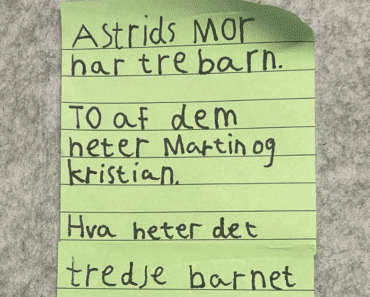 Astrids Mor
har tre barn.
TO af dem
heter Martin og
kristian.
Hva heter det
tredje barnet